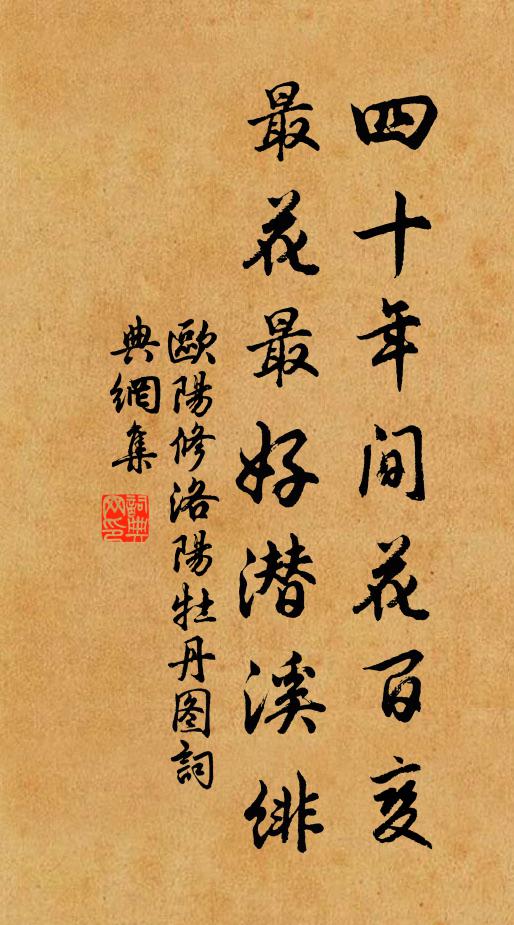 四十年间花百变
最花最好潜溪绯
歐陽修洛陽牡丹图詞
典網集
詞典
网印